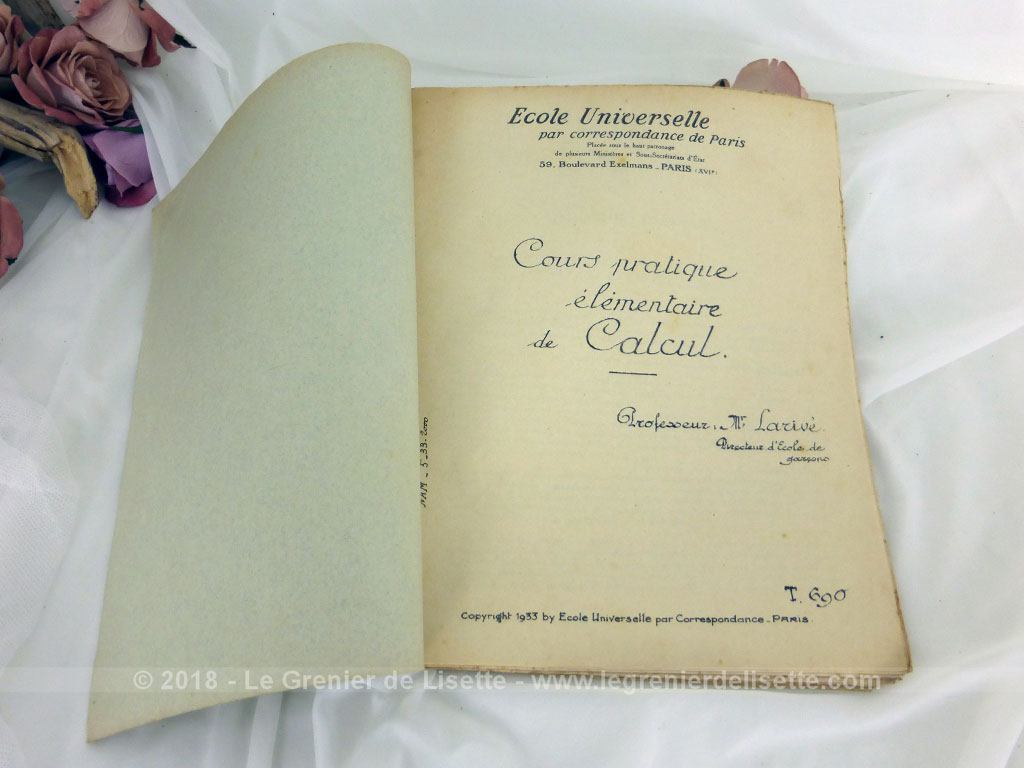 Ecole Universelle
par correspondance de Paris
Placée sous le haut patronage
de plusieurs Ministères et Sous-Secrétariats d'État
59, Boulevard Exelmans - PARIS (XVIe)
Cours pratique
élémentaire
de Calcul.
Professeur: Mr Larivé.
Directeur d'Ecole de
garçons
5-33-2000
T. 690
Copyright 1933 by Ecole Universelle par Correspondance - PARIS.
© 2018 - Le Grenier de Lisette - www.legrenierdelisette.com